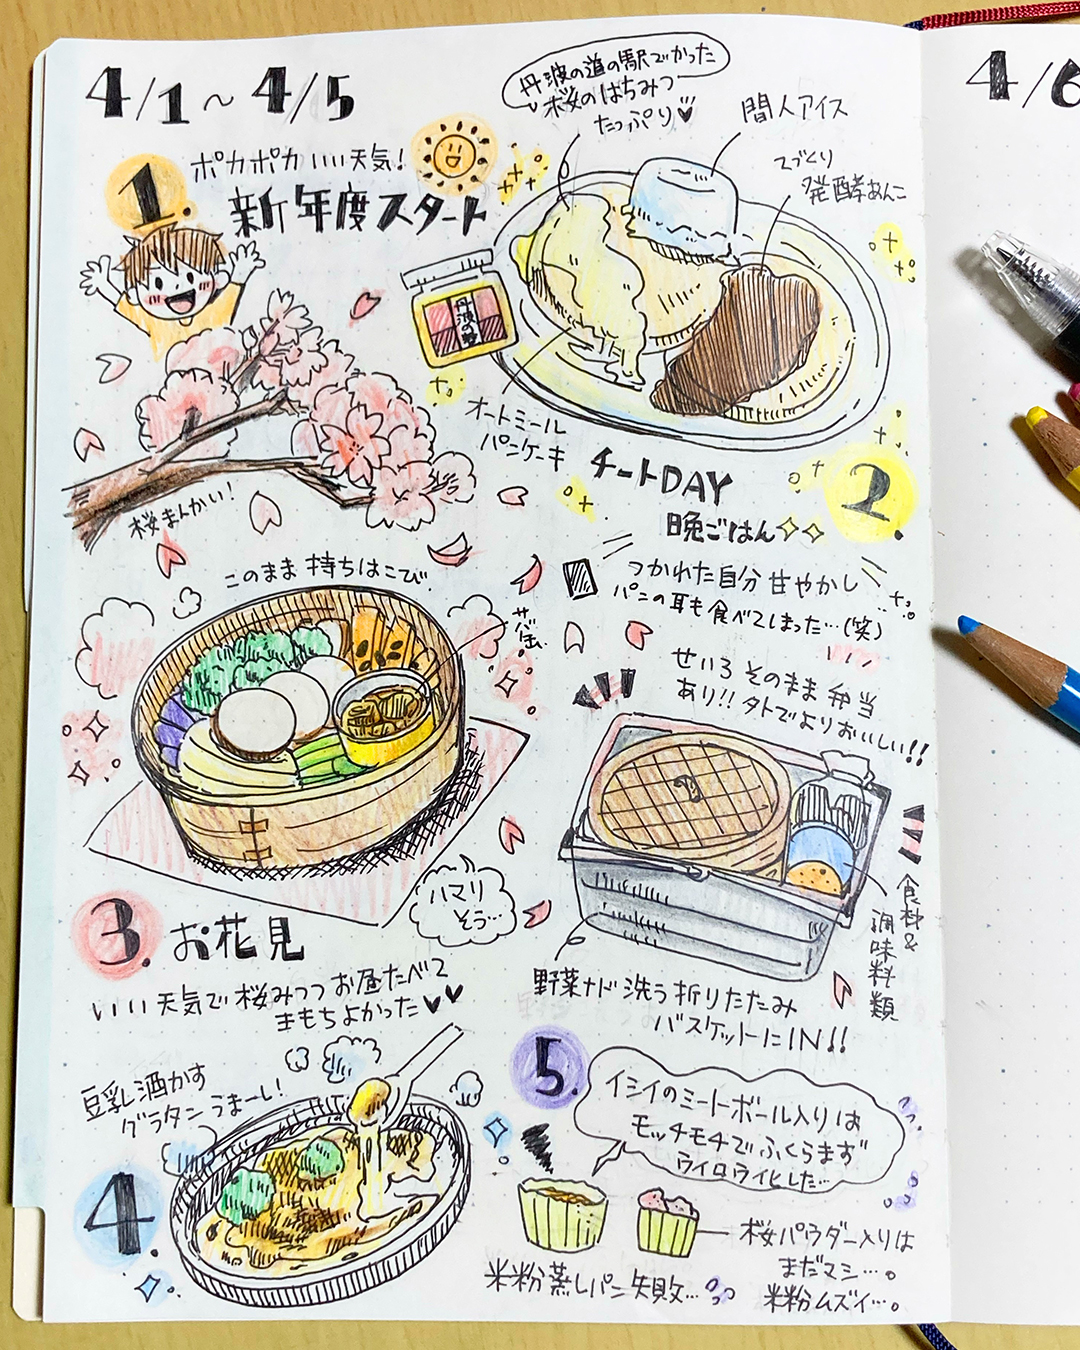 4/1～4/5
4/6
1. ポカポカいい天気！
新年度スタート
桜まんかい！
丹波の道の駅でかった
桜のはちみつ
たっぷり♥
間人アイス
てづくり
発酵あんこ
オートミール
パンケーキ
2.
チートDAY
晩ごはん
つかれた自分甘やかし
パンの耳も食べてしまった…(笑)
このまま持ちはこび
サバ缶
せいろそのまま弁当
あり!! 外でよりおいしい!!
ハマり
そう…
食料&
調味料類
野菜ナド洗う折りたたみ
バスケットにIN!!
3. お花見
いい天気で桜みつつお昼たべて
きもちよかった♥♥
4.
豆乳酒かす
グラタンうまーい！
5.
イシイのミートボール入りは
モッチモチでふくらまず
ウイロウ化した…
桜パウダー入りは
まだマシ…。
米粉ムズイ…。
米粉蒸しパン失敗…